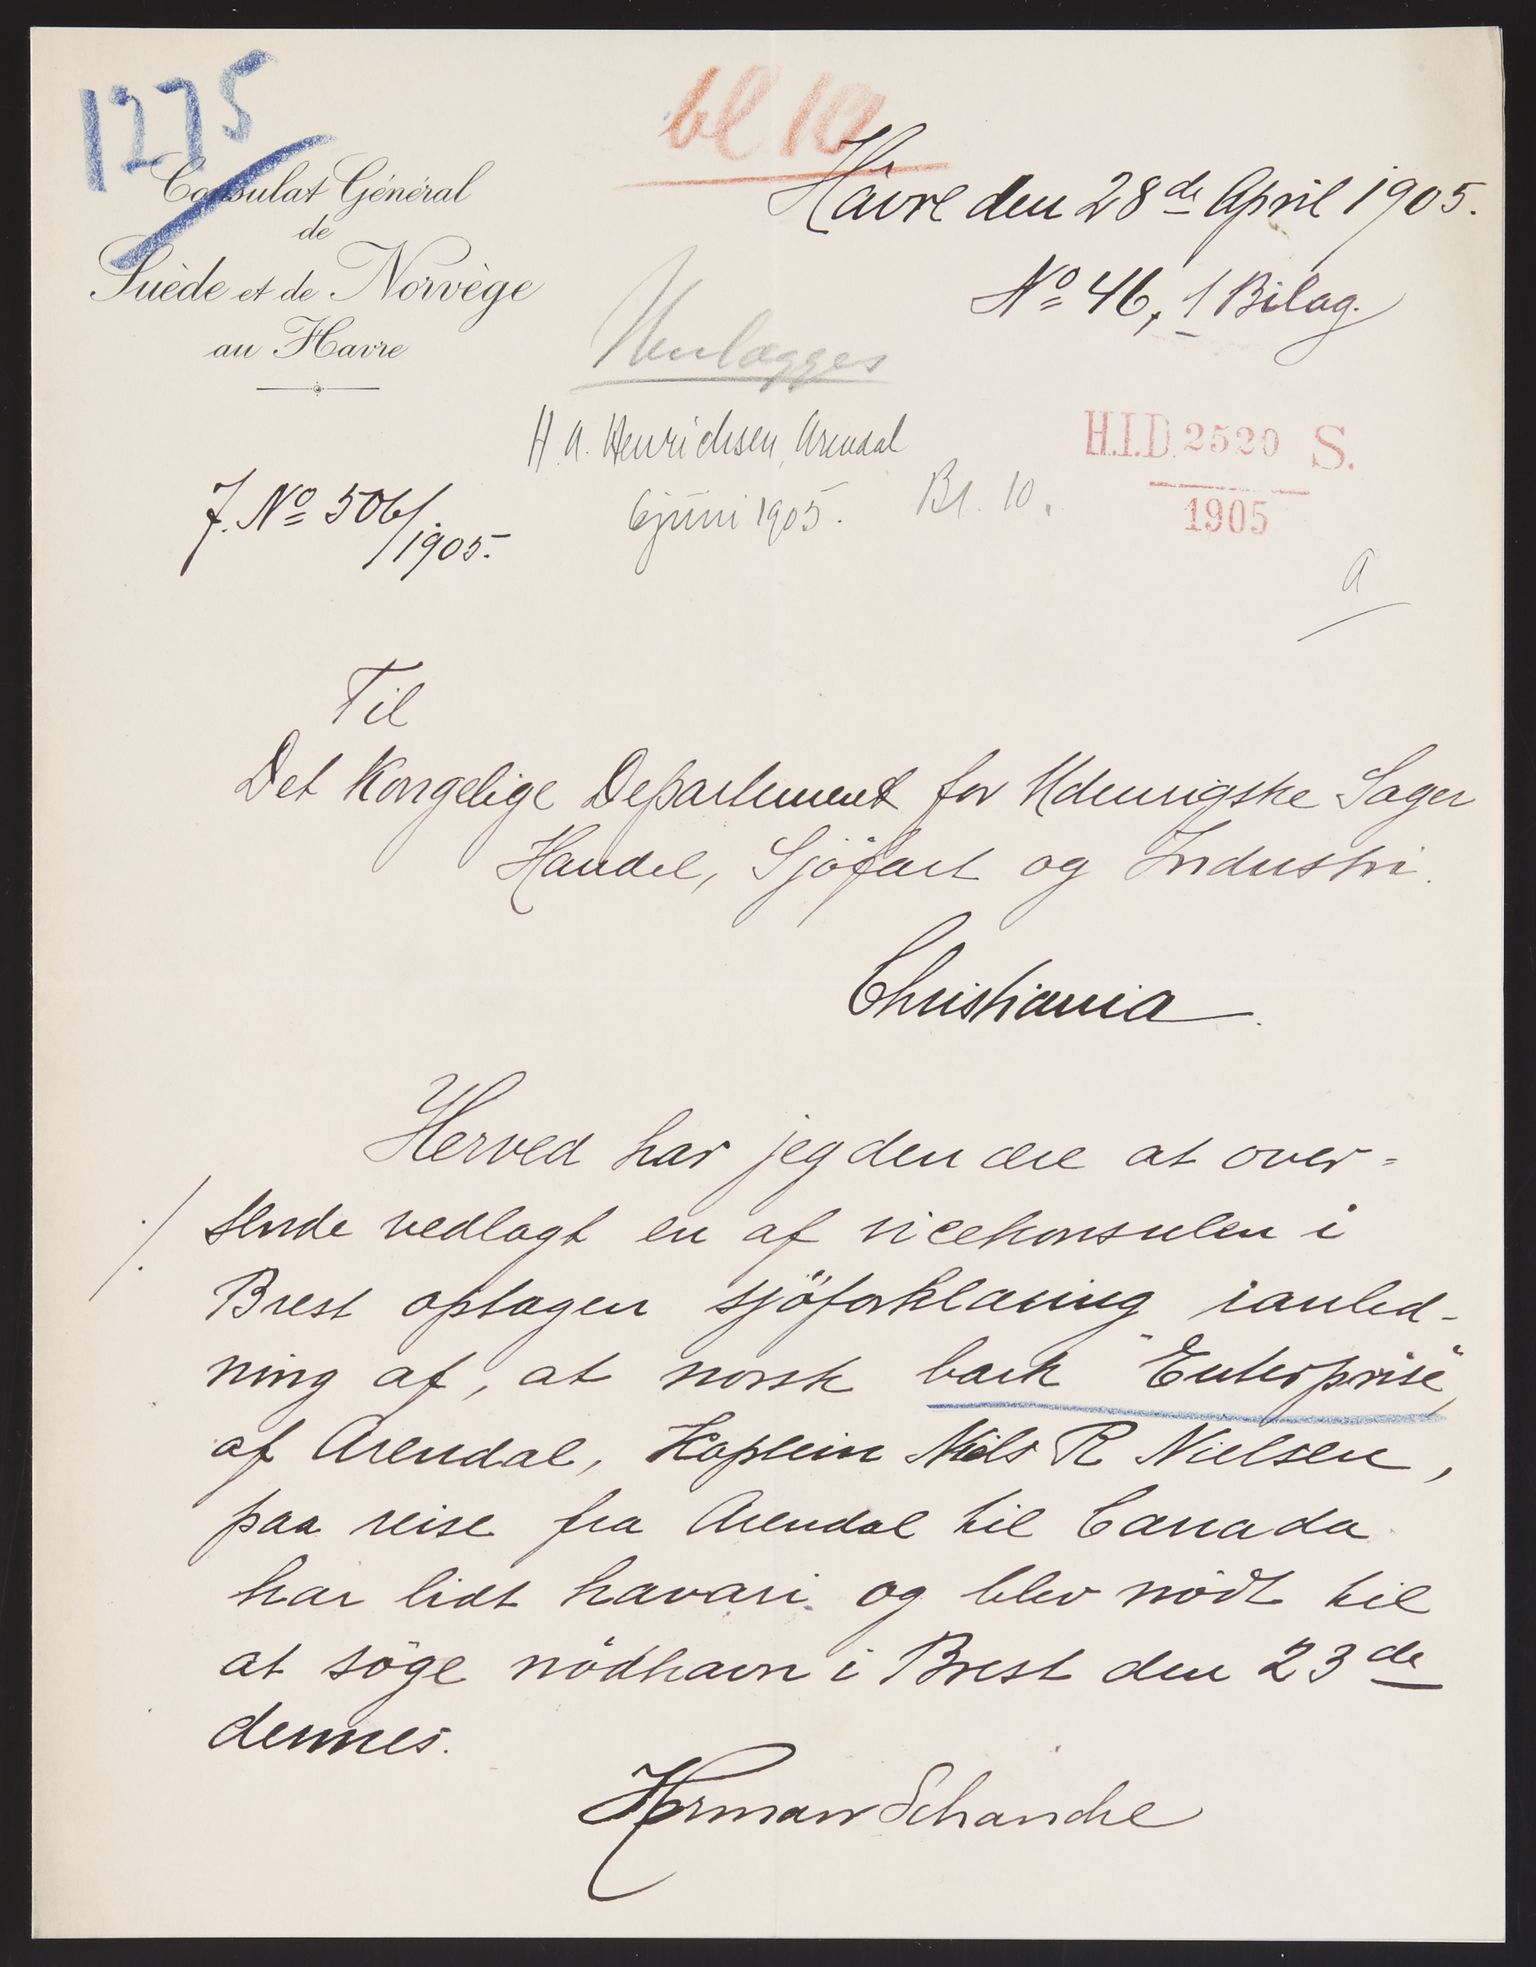 1275
bl 10
Consulat Général
de
Suède et de Norvège
au Havre
Hâvre den 28de April 1905.
No 46, 1 Bilag.
Henlægges
H. A. Henrichsen, Arendal
6 juni 1905. Bl. 10.
H.I.D. 2520 S.
1905
J. No 506/1905.
a
Til
Det Kongelige Departement for Udenrigske Sager
Handel, Sjöfart og Industri.
Christiania.
Herved har jeg den ære at over-
./. sende vedlagt en af vicekonsulen i
Brest optagen sjöforklaring ianled-
ning af, at norsk bark "Enterprise",
af Arendal, Kaptein Niels R Nielsen,
paa reise fra Arendal til Canada
har lidt havari og blev nödt til
at söge nödhavn i Brest den 23de
dennes.
Herman Schanche